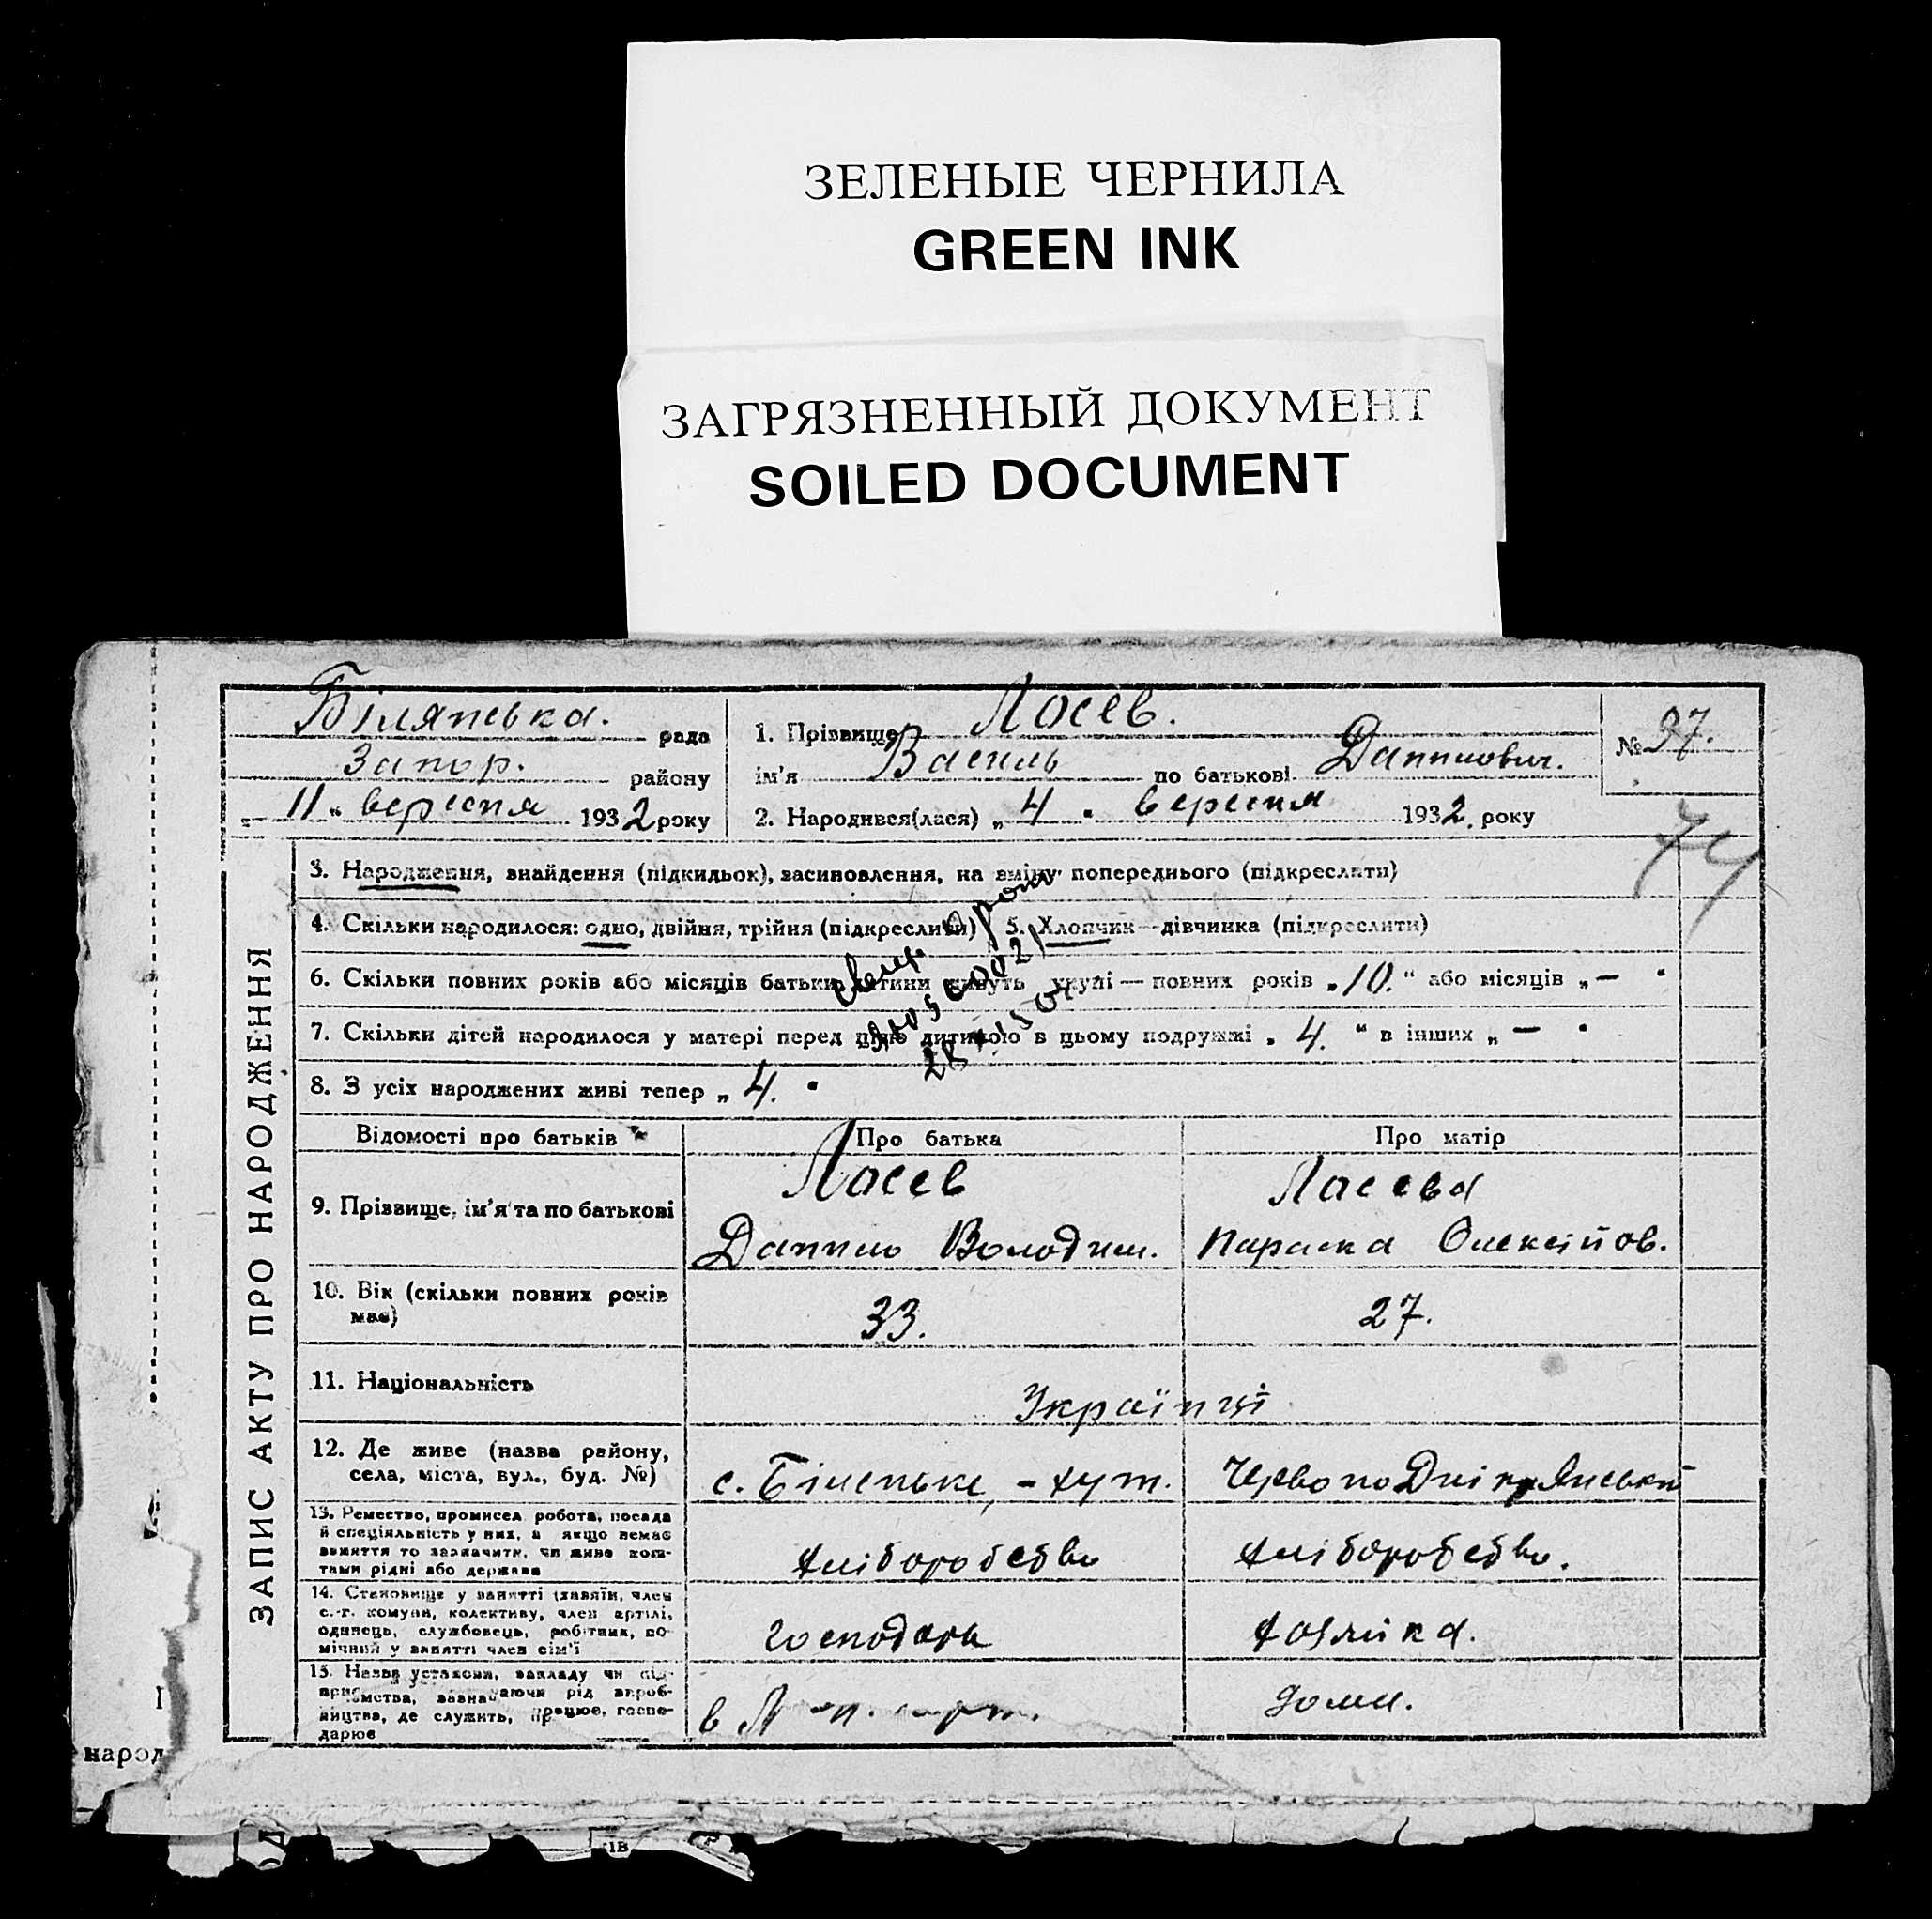 ЗЕЛЕНЫЕ ЧЕРНИЛА
GREEN INK
ЗАГРЯЗНЕННЫЙ ДОКУМЕНТ
SOILED DOCUMENT
Білянська. рада
Запор. району
„ 11 “ вересня 1932 року
1. Прізвище Лосев.
ім'я Василь по батькові Данилович.
2. Народився(лася) „ 4 “ вересня 1932. року
№ 97.
74
ЗАПИС АКТУ ПРО НАРОДЖЕННЯ
3. Народження, знайдення (підкидьок), засиновлення, на зміну попереднього (підкреслити)
4. Скільки народилося: одно, двійня, трійня (підкреслити) 5. Хлопчик—дівчинка (підкреслити)
6. Скільки повних років або місяців батьки дитини живуть укупі — повних років „ 10. “ або місяців „ — "
7. Скільки дітей народилося у матері перед цією дитиною в цьому подружжі „ 4. “ в інших „ — "
8. З усіх народжених живі тепер „ 4. "
Відомості про батьків
Про батька
Про матір
9. Прізвище, ім'я та по батькові
Лосев
Данило Володим.
Лосева
Параска Олексійов.
10. Вік (скільки повних років має)
33.
27.
11. Національність
Українці
12. Де живе (назва району, села, міста, вул., буд. №)
с. Біленьке, - хут. ЧервоноДніпрянський
13. Ремество, промисел робота, посада
й спеціяльність у них, а якщо немає
заняття то зазначити, чи живе кош-
тами рідні або держави
хліборобство
хліборобство.
14. Становище у занятті (хазяїн, член
с.-г. комуни, колективу, член артілі,
одинець, службовець, робітник, по-
мічний у занятті член сім'ї
господарь
хазяйка.
15. Назва установи, закладу чи під-
приємства, зазначаючи рід вироб-
ництва, де служить, працює, госпо-
дарює
в
дома.
народ
ів